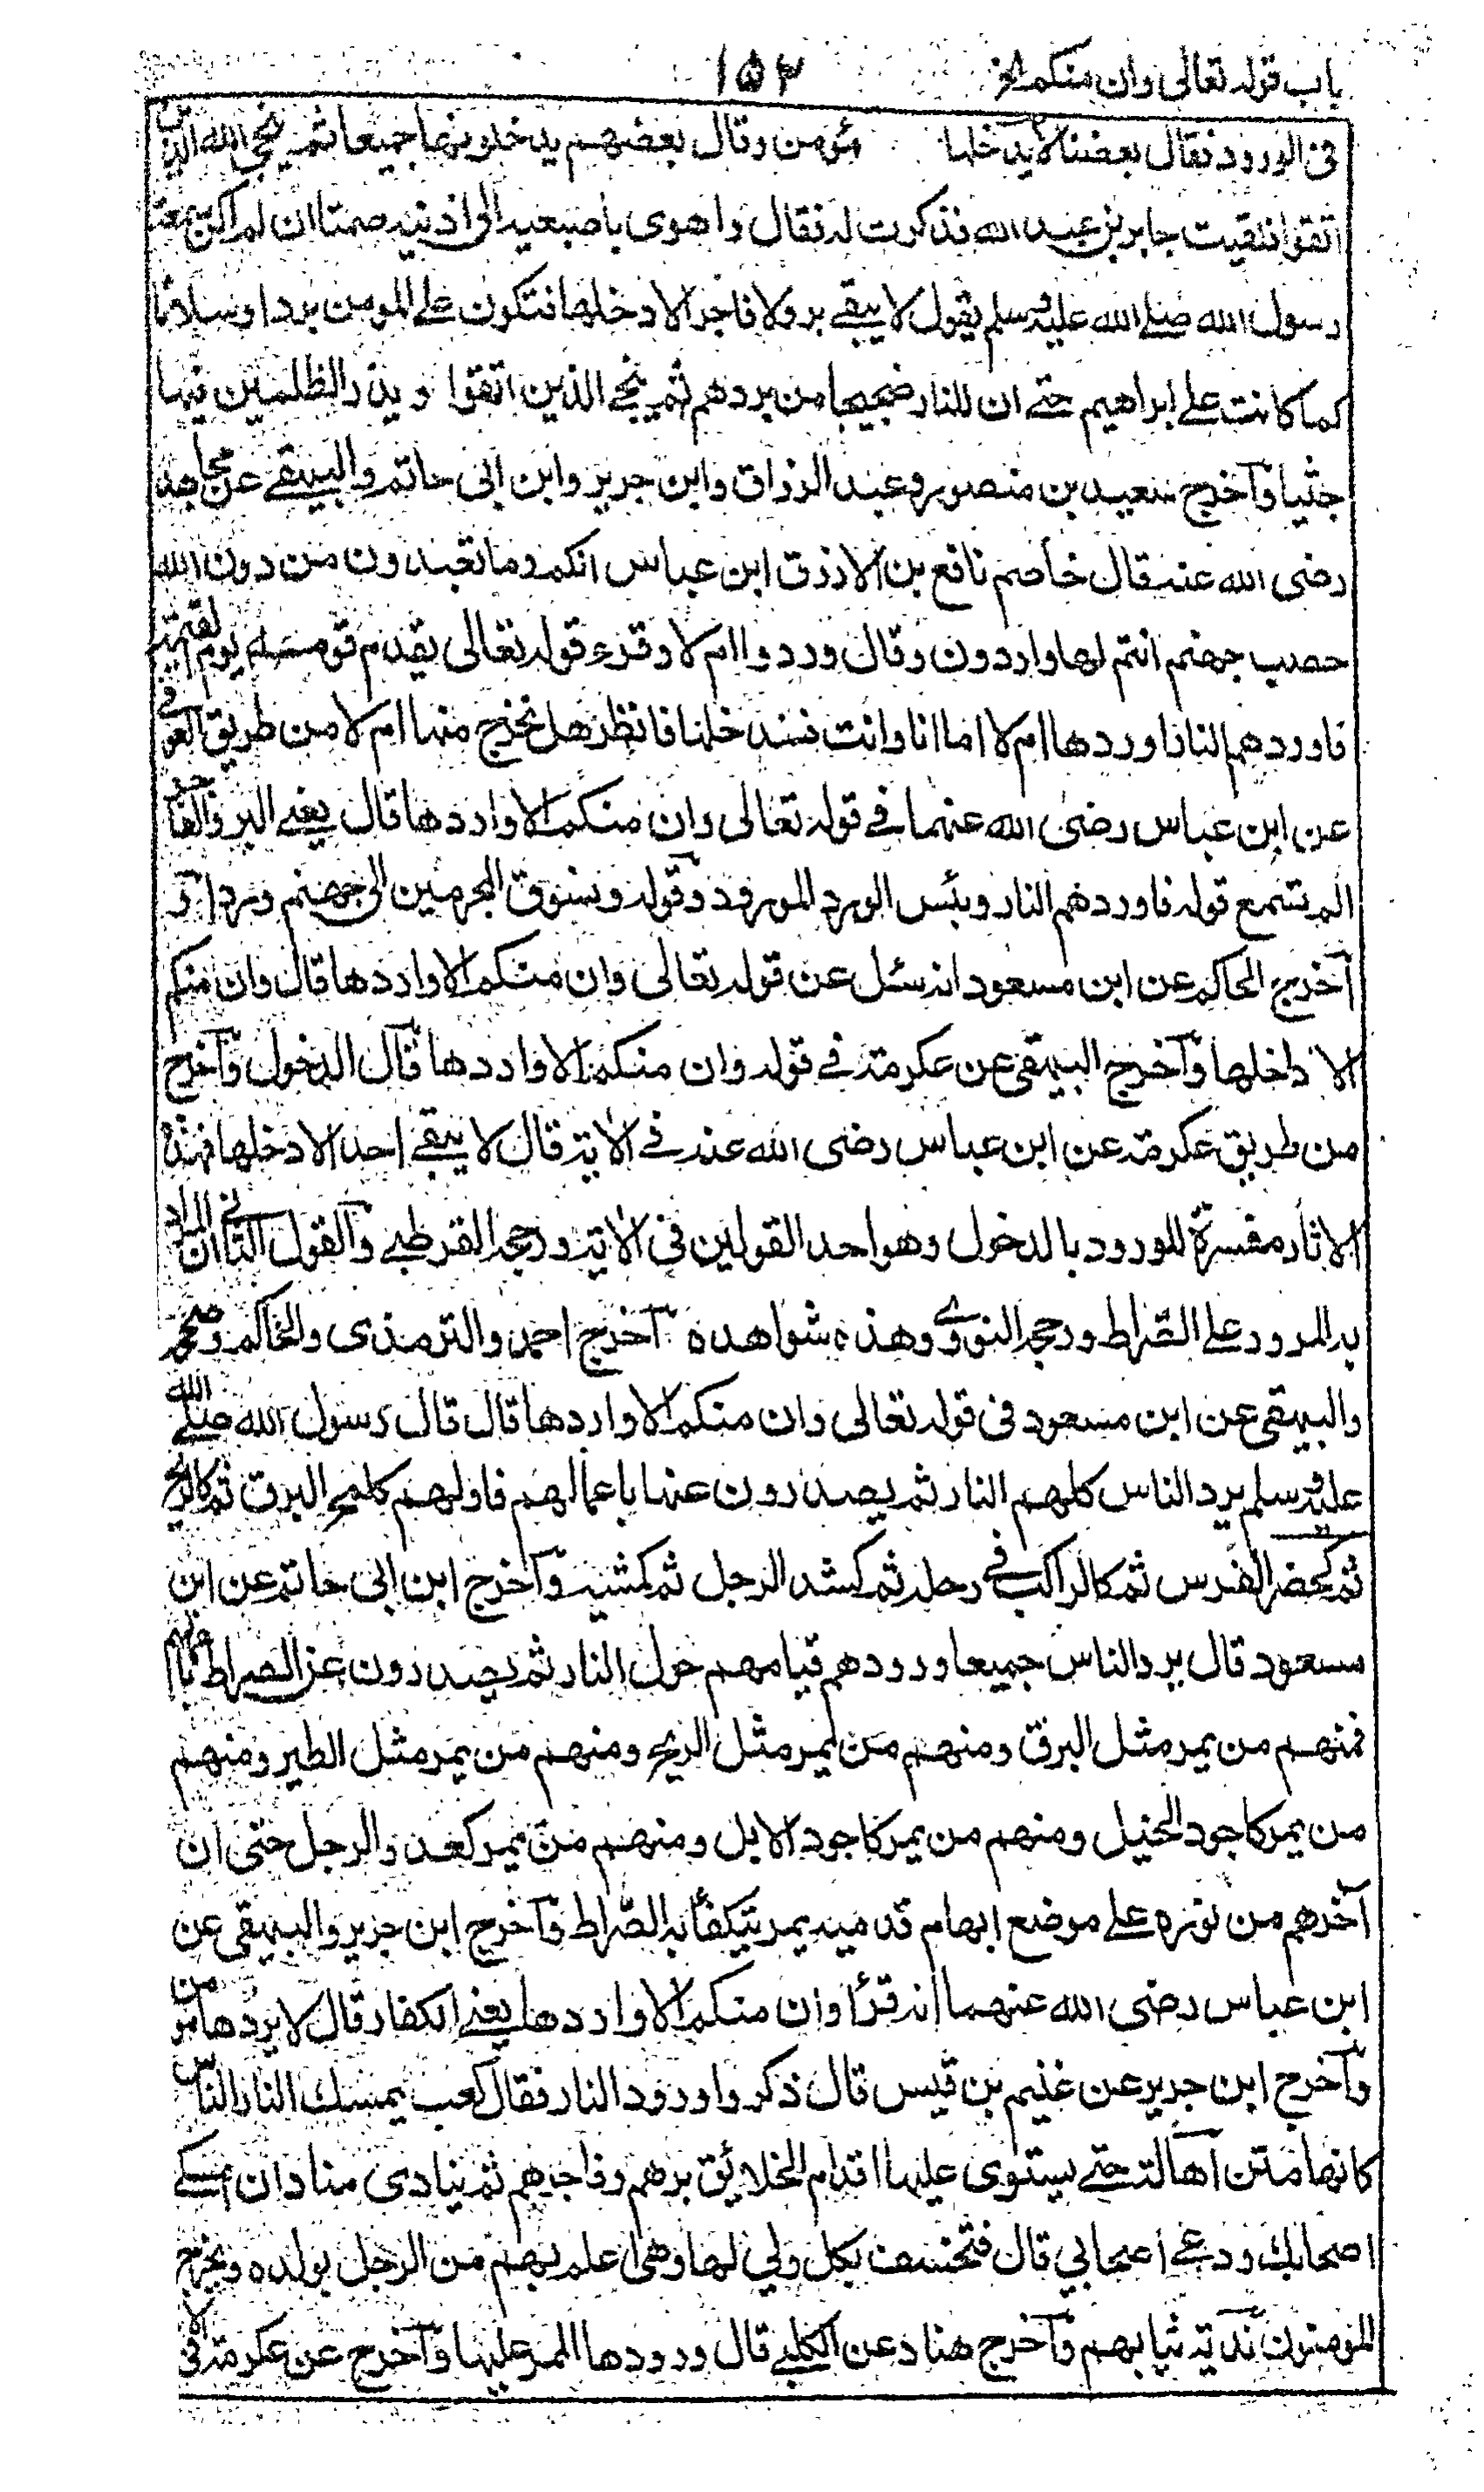 باب قوله تعالى وان منكم الخ ١٥٣
فى الورود فقال بعضنا لا يدخلها مؤمن وقال بعضهم يدخلونها جميعا ثم ينجى الله الذين
اتقوا فلقيت جابر بن عبد الله فذكرت له فقال واهوى باصبعيه الى اذنيه صمتا ان لم اكن سمعت
رسول الله صلے الله عليه وسلم يقول لا يبقے بر ولا فاجر الا دخلها فتكون علے المومن بردا وسلاما
كما كانت علے ابراهيم حتے ان للنار ضجيجا من بردهم ثم ينجے الذين اتقوا ويذر الظلمين فيها
جثيا وآخرج سعيد بن منصور وعبد الرزاق وابن جرير وابن ابى حاتم والبيهقے عن مجاهد
رضى الله عنه قال خاصم نافع بن الازرق ابن عباس انكم وما تعبدون من دون الله
حصب جهنم انتم لها واردون وقال وردوا ام لا وقرء قوله تعالى يقدم قومه يوم القيمة
فاوردهم النار اوردها ام لا اما انا وانت فسندخلها فانظر هل نخرج منها ام لا من طريق العوفے
عن ابن عباس رضى الله عنهما فے قوله تعالى وان منكم الا واردها قال يعنے البر والفاجر
الم تسمع قوله فاوردهم النار وبئس الورد المورود وقوله ونسوق المجرمين الى جهنم وردا و
آخرج الحاكم عن ابن مسعود انه سئل عن قوله تعالى وان منكم الا واردها قال وان منكم
الا داخلها وآخرج البيهقى عن عكرمة فے قوله وان منكم الا واردها قال الدخول وآخرج
من طريق عكرمة عن ابن عباس رضى الله عنه فے الاية قال لا يبقے احد الا دخلها فهذه
الاثار مفسرة للورود بالدخول وهو احد القولين فى الاية ورجحه القرطبے والقول الثانى ان المراد
به المرور علے الصّراط ورجحه النووے وهذه شواهده آخرج احمد والترمذى والحاكم وصححه
والبيهقى عن ابن مسعود فى قوله تعالى وان منكم الا واردها قال قال رسول الله صلے الله
عليه وسلم يرد الناس كلهم النار ثم يصدرون عنها باعمالهم فاولهم كلمح البرق ثم كالريح
ثم كحضر الفرس ثم كالراكب فے رحله ثم كشد الرجل ثم كمشيه وآخرج ابن ابى حاتم عن ابن
مسعود قال يرد الناس جميعا وورودهم قيامهم حول النار ثم يصدرون عن الصراط باعمالهم
فمنهم من يمر مثل البرق ومنهم من يمر مثل الريح ومنهم من يمر مثل الطير ومنهم
من يمر كاجود الخيل ومنهم من يمر كاجود الابل ومنهم من يمر كعدو الرجل حتى ان
آخرهم من نوره علے موضع ابهام قدميه يمر يتكفأ به الصّراط وآخرج ابن جرير والبيهقى عن
ابن عباس رضى الله عنهما انه قرأ وان منكم الا واردها يعنے الكفار قال لا يردها مومن
وآخرج ابن جرير عن غنيم بن قيس قال ذكروا ورود النار فقال كعب يمسك النار الناس
كانها متن آهالة حتے يستوى عليها اقدام الخلائق برهم وفاجرهم ثم ينادى مناد ان امسكے
اصحابك ودعے اصحابي قال فتخسف بكل ولي لها وهى اعلم بهم من الرجل بولده ويخرج
المومنون ندية ثيابهم وآخرج هناد عن الكلبے قال ورودها الممر عليها وآخرج عن عكرمة فى الا